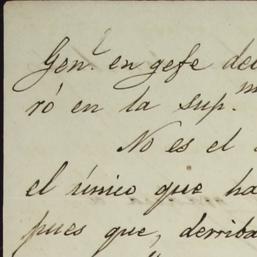 Gen.l en gefe del
ró en la sup.
No es el
el único que ha
pues que, derriba